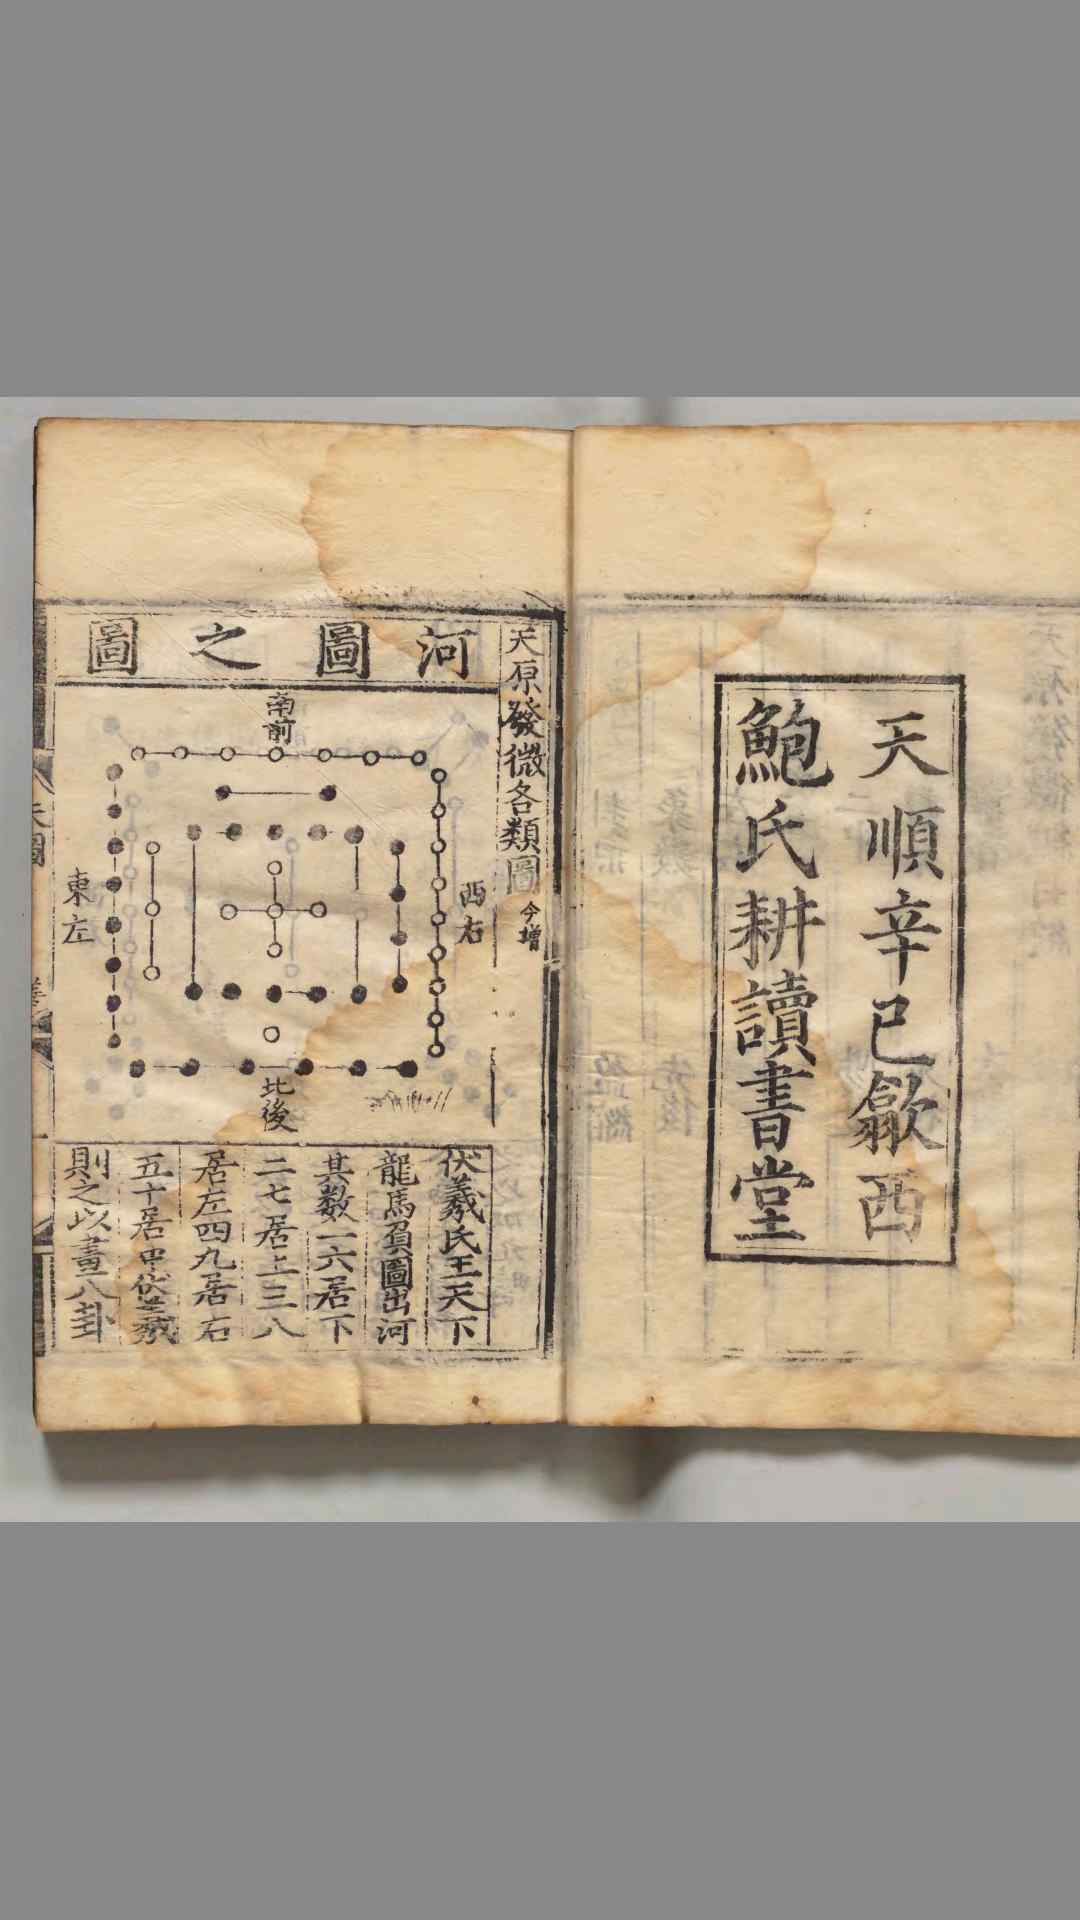 天順辛巳歙西
鮑氏耕讀書堂
天原發微各類圖今增
河圖之圖
南前
西右
東左
北後
伏羲氏王天下
龍馬負圖出河
其数一六居下
二七居上三八
居左四九居右
五十居中伏羲
則之以畫八卦